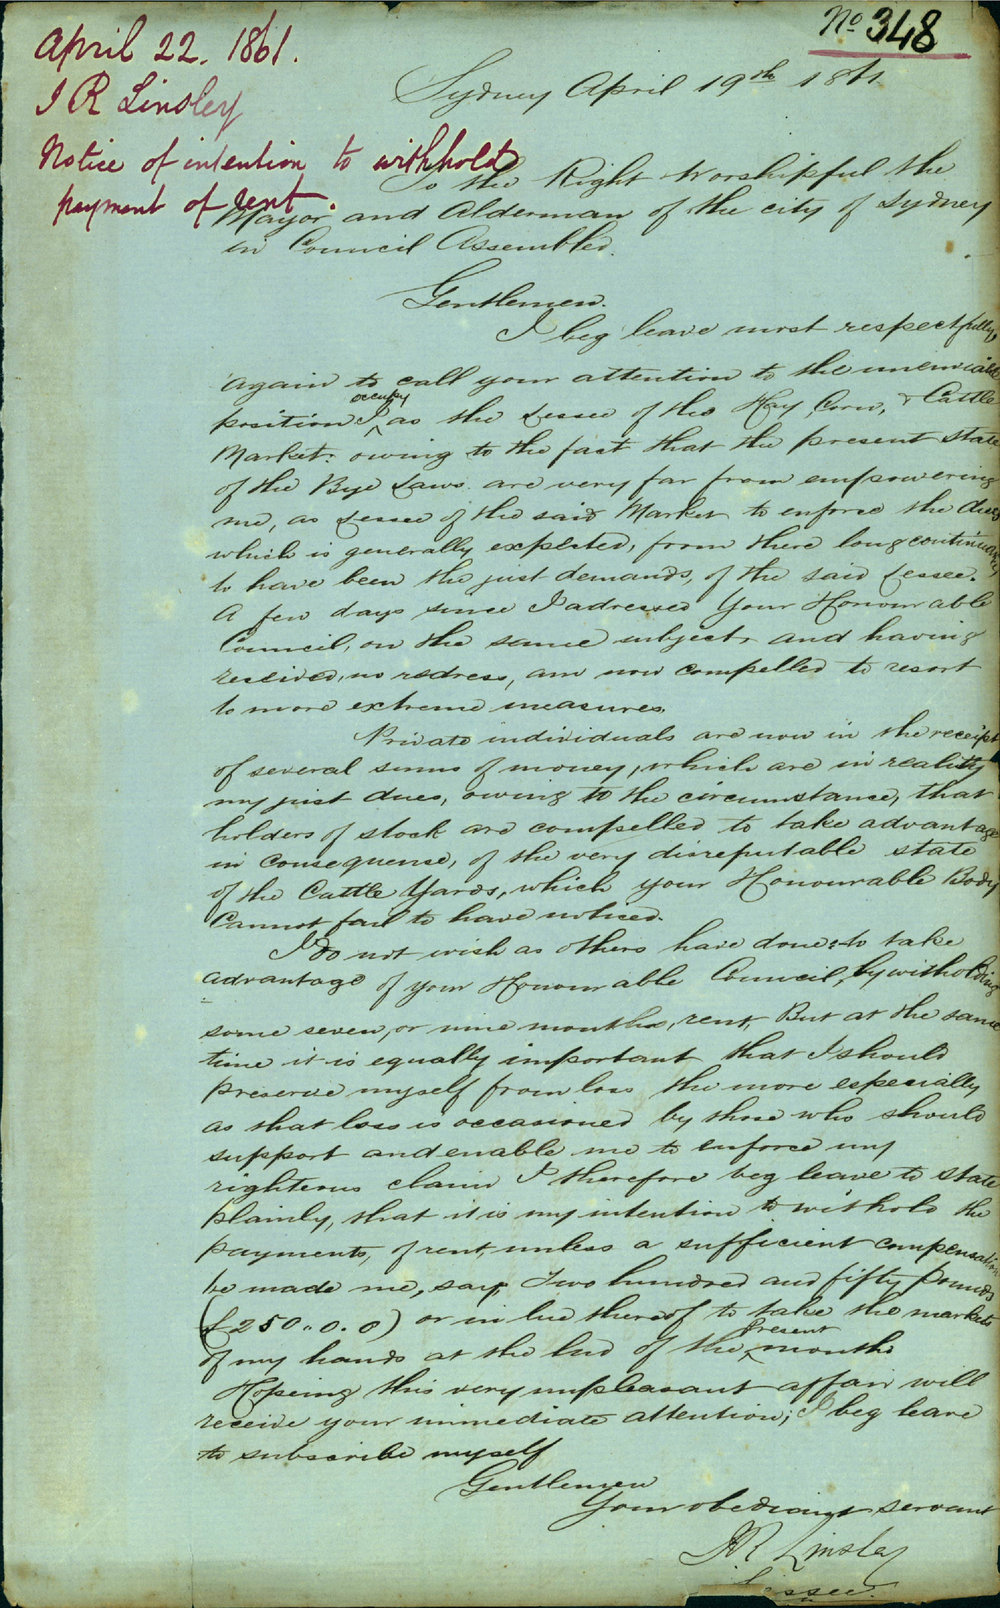 No 348
April 22. 1861.
J R Linsley
Notice of intention to withhold
payment of rent.
Sydney April 19th 1861.
To the Right Worshipful the
Mayor and Alderman of the city of Sydney
in Council Assembled.
Gentlemen.
I beg leave most respectfully,
again to call your attention to the unenviable
position I occupy as the Lessee of the Hay, Corn, & Cattle
Market: owing to the fact that the present state
of the Bye Laws are very far from empowering
me, as Lessee of the said Market to enforce the dues
which is generally expected, from there long continuancy
to have been the just demands, of the said Lessee.
A few days since I adressed Your Honourable
Council, on the same subject and having
received, no redress, am now compelled to resort
to more extreme measures.
Private individuals are now in the receipt
of several sums of money, which are in reality
my just dues, owing to the circumstance, that
holders of stock are compelled to take advantage
in consequense, of the very disreputable state
of the Cattle Yards, which your Honourable Body
Cannot fail to have noticed.
I do not wish as others have done to take
advantage of your Honourable Council, by witholding
some seven, or nine months, rent, But at the same
time it is equally important that I should
preserve myself from loss the more especially
as that loss is occasioned by those who should
support and enable me to enforce my
righteous claim I therefore beg leave to state
plainly, that it is my intention to withold the
payments, of rent, unless a sufficient compensation
be made me, say, Two hundred and fifty pounds
(£250.0.0) or in lue thereof to take the markets
of my hands at the End of the present month
Hopeing this very unpleasant affair will
receive your immediate attention; I beg leave
to subscribe myself
Gentlemen
Your obediant servant
J R Linsley
Lessee.